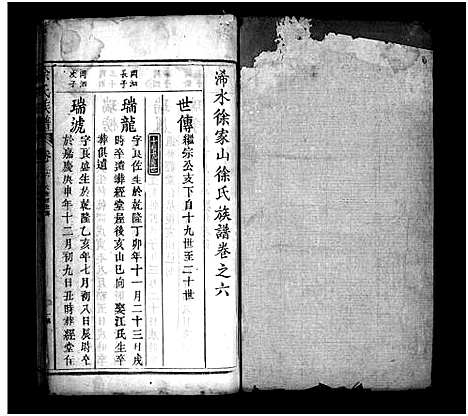 浠水徐家山徐氏族譜卷之六
世傳
繼宗公支下自十九世至二十世
國泗
長子
瑞龍
字辰佐生於乾隆丁卯年十一月二十三日戌
時卒遺葬經堂屋後亥山巳向 娶江氏生卒
葬俱遺
國泗
次子
瑞淲
字辰盛生於乾隆乙亥年七月初八日辰時卒
於嘉慶庚申年十二月初九日丑時葬經堂在